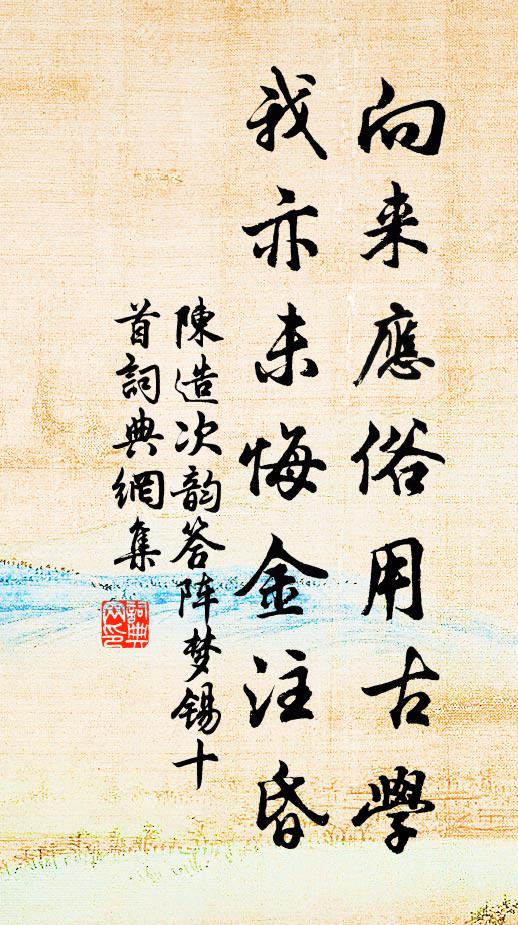 向来應俗用古學
我亦未悔金注昏
陳造次韵答阵梦锡十
首詞典網集
詞典